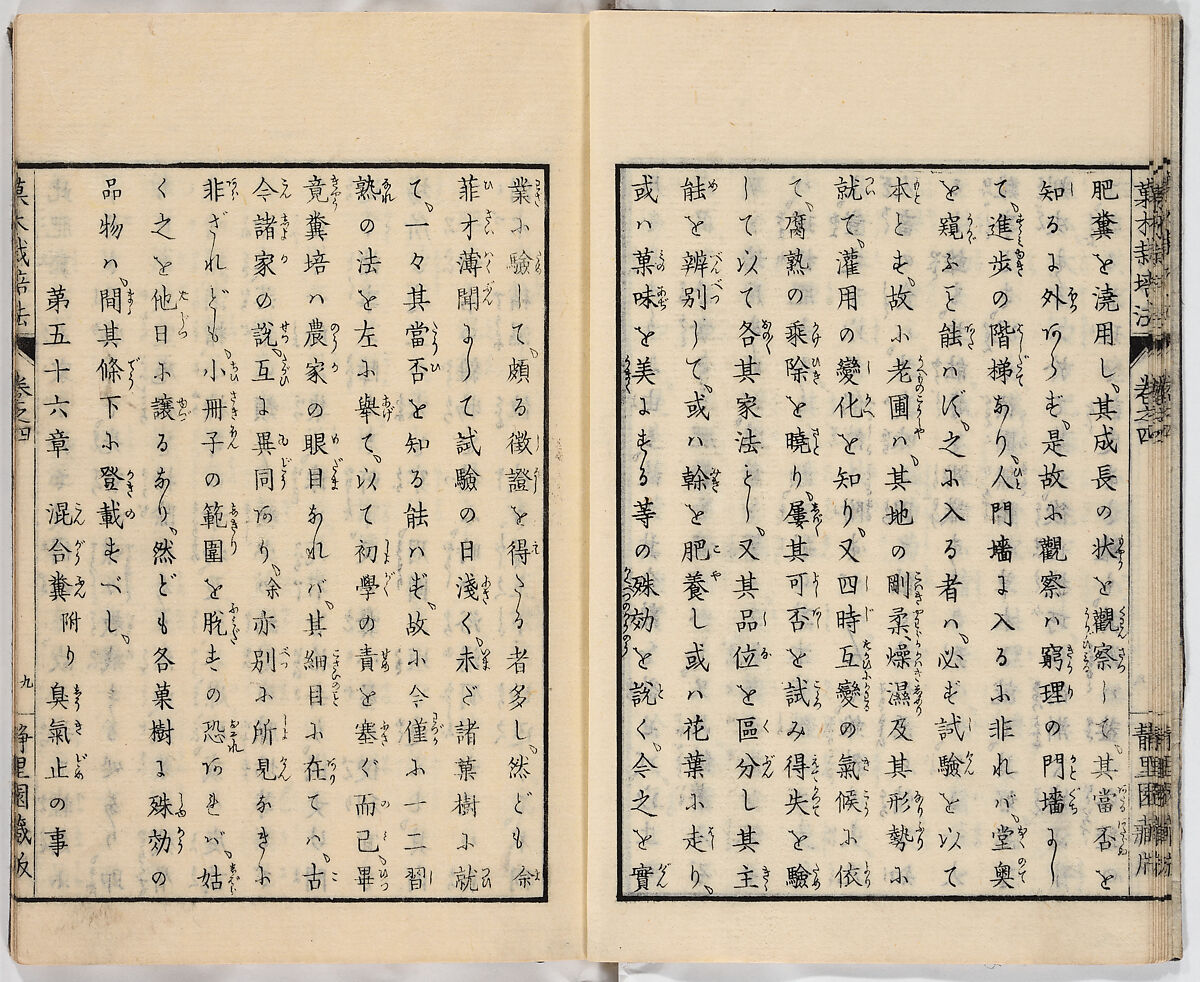 菓木栽培法 卷之四 静里園藏版
肥糞を澆用し、其成長の状を觀察して、其當否を
知るに外あらず、是故に觀察ハ窮理の門墻にし
て、進歩の階梯なり、人門墻に入るに非れバ、堂奥
を窺ふこと能ハず、之に入る者ハ、必ず試驗を以て
本とす、故に老圃ハ、其地の剛柔燥濕及其形勢に
就て、灌用の變化を知り、又四時互變の氣候に依
て、腐熟の乘除を曉り、屢其可否を試み得失を驗
して以て各其家法とし、又其品位を區分し其主
能を辨別して、或ハ幹を肥養し或ハ花葉に走り、
或ハ菓味を美にする等の殊効を說く、今之を實
業に驗して、頗る徴證を得たる者多し、然ども余
菲才薄聞にして試驗の日淺く、未ざ諸菓樹に就
て、一々其當否を知る能ハず、故に今僅に十二習
熟の法を左に舉て、以て初學の責を塞ぐ而已、畢
竟糞培ハ農家の眼目なれバ、其細目に在てハ、古
今諸家の說、互に異同あり、余亦別に所見なきに
非ざれども、小冊子の範圍を脫すの恐あれバ、姑
く之を他日に讓るなり、然ども各菓樹に殊効の
品物ハ、間其條下に登載すべし、
第五十六章 混合糞 附り臭氣止の事
菓木栽培法 卷之四 九 静里園藏版